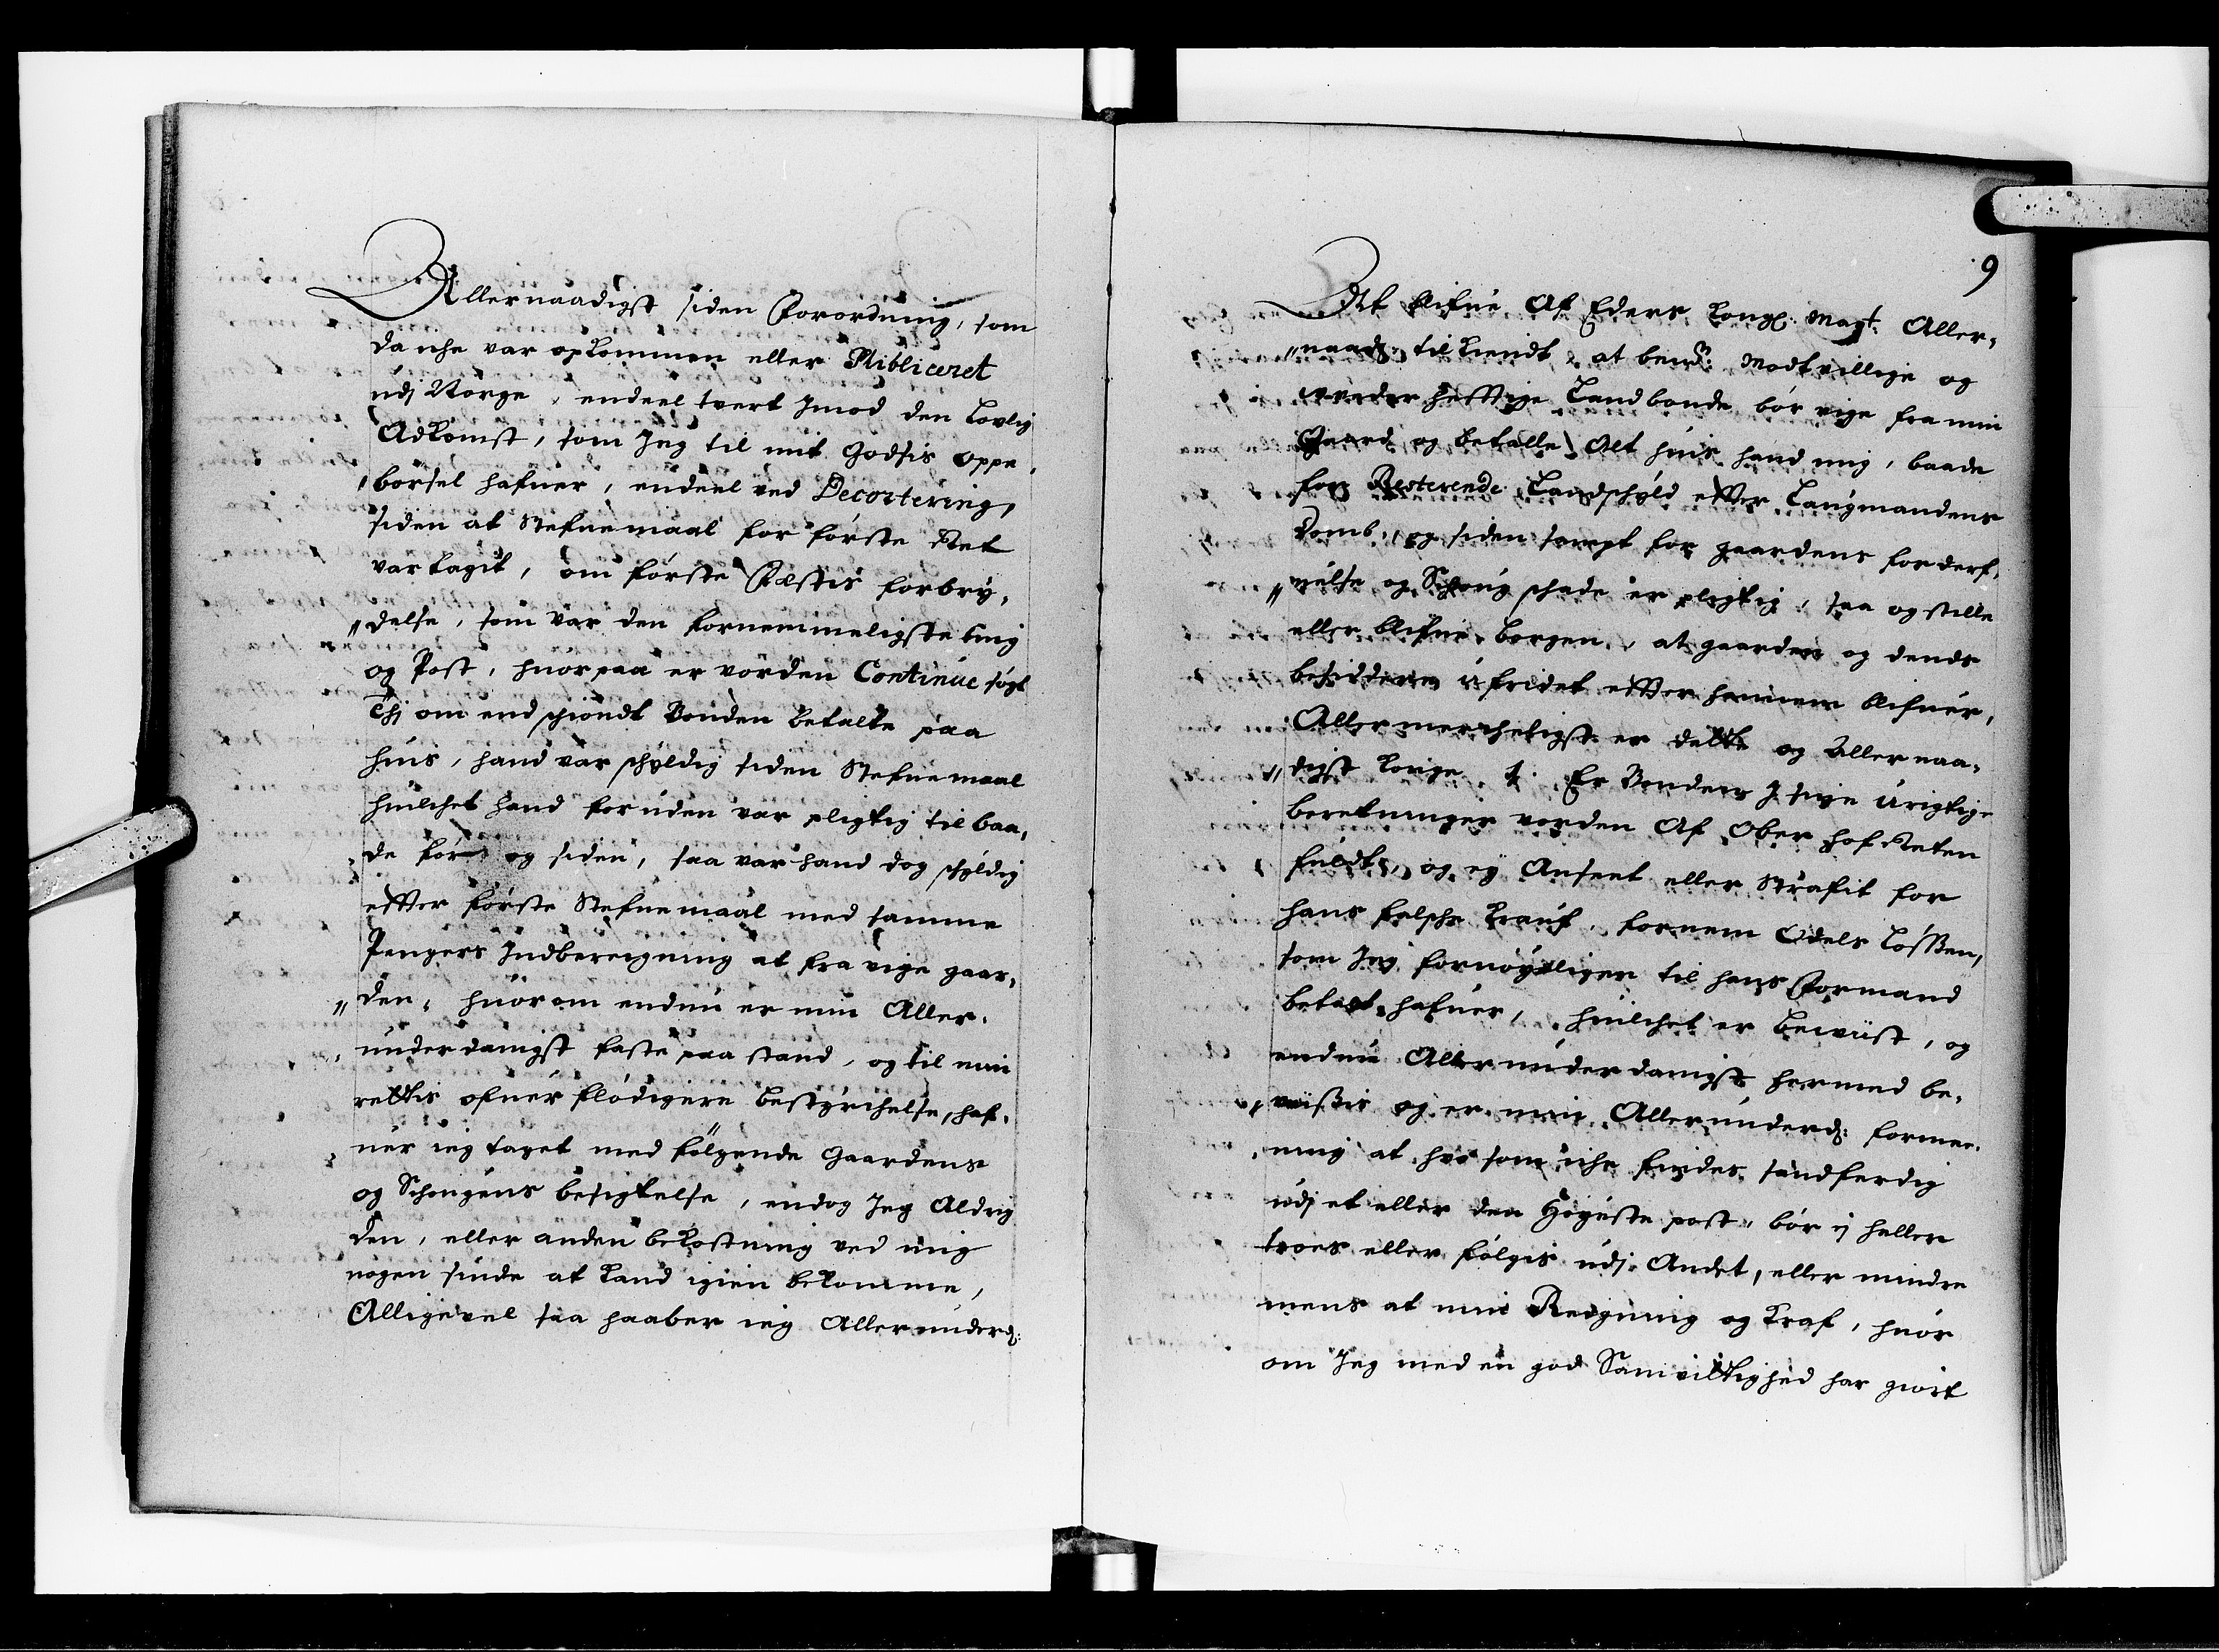 Allernaadigst siden Forordning, som
da iche var opkommen eller Publiceret
udj Norge, endeel tvert Imod den Lovlig
Adkomst, som Jeg til mit Godsis oppe,
børsel hafuer, endeel ved Decortering,
siden at Stefnemaal for første Ret
var tagit, om første Festis forbry,
"delse, som var den fornemmeligste ting
og Post, huorpaa er vorden Continue søgt
Thj om end schiøndt Bonden betalte paa
huis, hand var schyldig siden Stefnemaal
huilchet hand foruden var pligtig til baa,
de før og siden, saa var hand dog schyldig
efter første Stefnemaal med samme
Pengers Indberegning at fra vige gaar,
"den, huorom endnu er min Aller,
underdanigst faste paa stand, og til min
rettis ofuerflødigere bestyrchelse, haf,
uer ieg taget med følgende Gaardens
og Schougens besigtelse, endog Jeg Aldrig
den, eller anden bekostning ved mig
nogen sinde at kand igien bekomme,
Alligevel saa haaber ieg Allerunderd:
9
At blifue Af Eders Kongl: Mayt. Aller,
"naad: tilkiendt, at bemte: Modtvillige og
wvederhefftige Landbonde bør vige fra min
Gaard og betalle Alt huis hand mig, baade
for Resterende Landschyld efter Laugmandens
Domb, og siden sampt for gaardens forderf,
"velse og Schoug schade er pligtig, saa og stille
eller blifue borgen, at gaarden og dends
besiddere ufridet efter hannem blifuer,
Allermercheligst er dette og Allernaa,
"digst Konge. Er Bondens J siige urigtige
beretninger vorden Af Ober Hof Retten
fuldt, og ey Anseet eller Strafit for
hans falsche krauf, fornem Odels Løssen,
som Jeg fornøyeligen til hans Formand
betalt hafuer, huilchet er beviist, og
endnu Allerunderdanigst hermed be,
"viissis og er min Allerunderd: formee,
ning at hvo som iche findes sandferdig
udj et eller den Høyeste post, bør ej heller
troes eller følgis udj Andet, eller mindre
mens at min Regning og kraf, huor
om Jeg med en god Samvittighed har giort